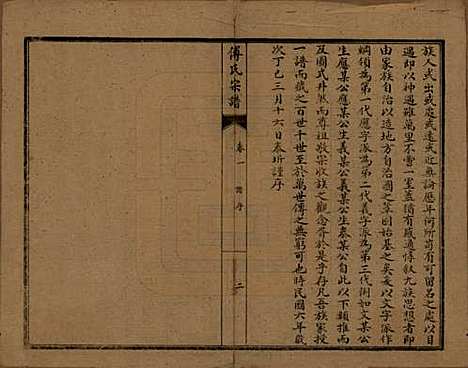 族人或出或處或遠或近無論歷年何所苟有可留名之處以目
遇即以神遇雖萬里不啻一室蓋猶有感通惇叙九族思想者即
由家族自治以造地方自治國之萃固始基之矣爰以文字派作
綱領為第一代應字派為第二代義字派為第三代例如文某公
生應某公應某公生義某公義某公生泰某公自此以下類推而
及圖式井然而尊祖敬宗收族之觀念胥於是乎存凡吾族家授
一譜而藏之百世千世至於萬世傳之無窮可也時民國六年歲
次丁巳三月十六日泰圻謹序
傅氏宗譜
卷一
譜序
二